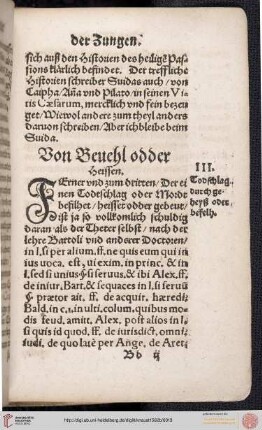 der Zungen.
sich auß den Historien des heilige Paſ-
sions klärlich befindet. Der treffliche
Historien schreiber Suidas auch / von
Caipha / Aña vnd Pilato / in seinen Vi-
tis Cæsarum, mercklich vnd fein bezeu
get / Wiewol andere zum theyl anders
daruon schreiben / Aber ich bleibe beim
Suida.
Von Beuehl odder
Heissen.
III.
Todschlag
durch ge-
heyß oder
befelh.
FErner vnd zum dritten / Der ei-
nen Todeschlag oder Mordt
befilhet / heisset odder gebeut /
ist ja so vollkomlich schuldig
daran als der Theter selbst / nach der
lehre Bartoli vnd anderer Doctoren /
in l. si per alium. ff. ne quis eum qui in
ius uoca. est, ui exim. in princ. & in
l. sed si unius § si seruus & ibi Alex. ff.
de iniur. Bart. & sequaces in l. si seruū
§ prætor ait. ff. de acquir. hæredi.
Bald. in c. 1. in ulti. colum. quibus mo-
dis feud. amitt. Alex. post alios in l.
si quis id quod. ff. de iurisdict. omni.
iudi. de quo latè per Ange. de Aret.
Bb ij